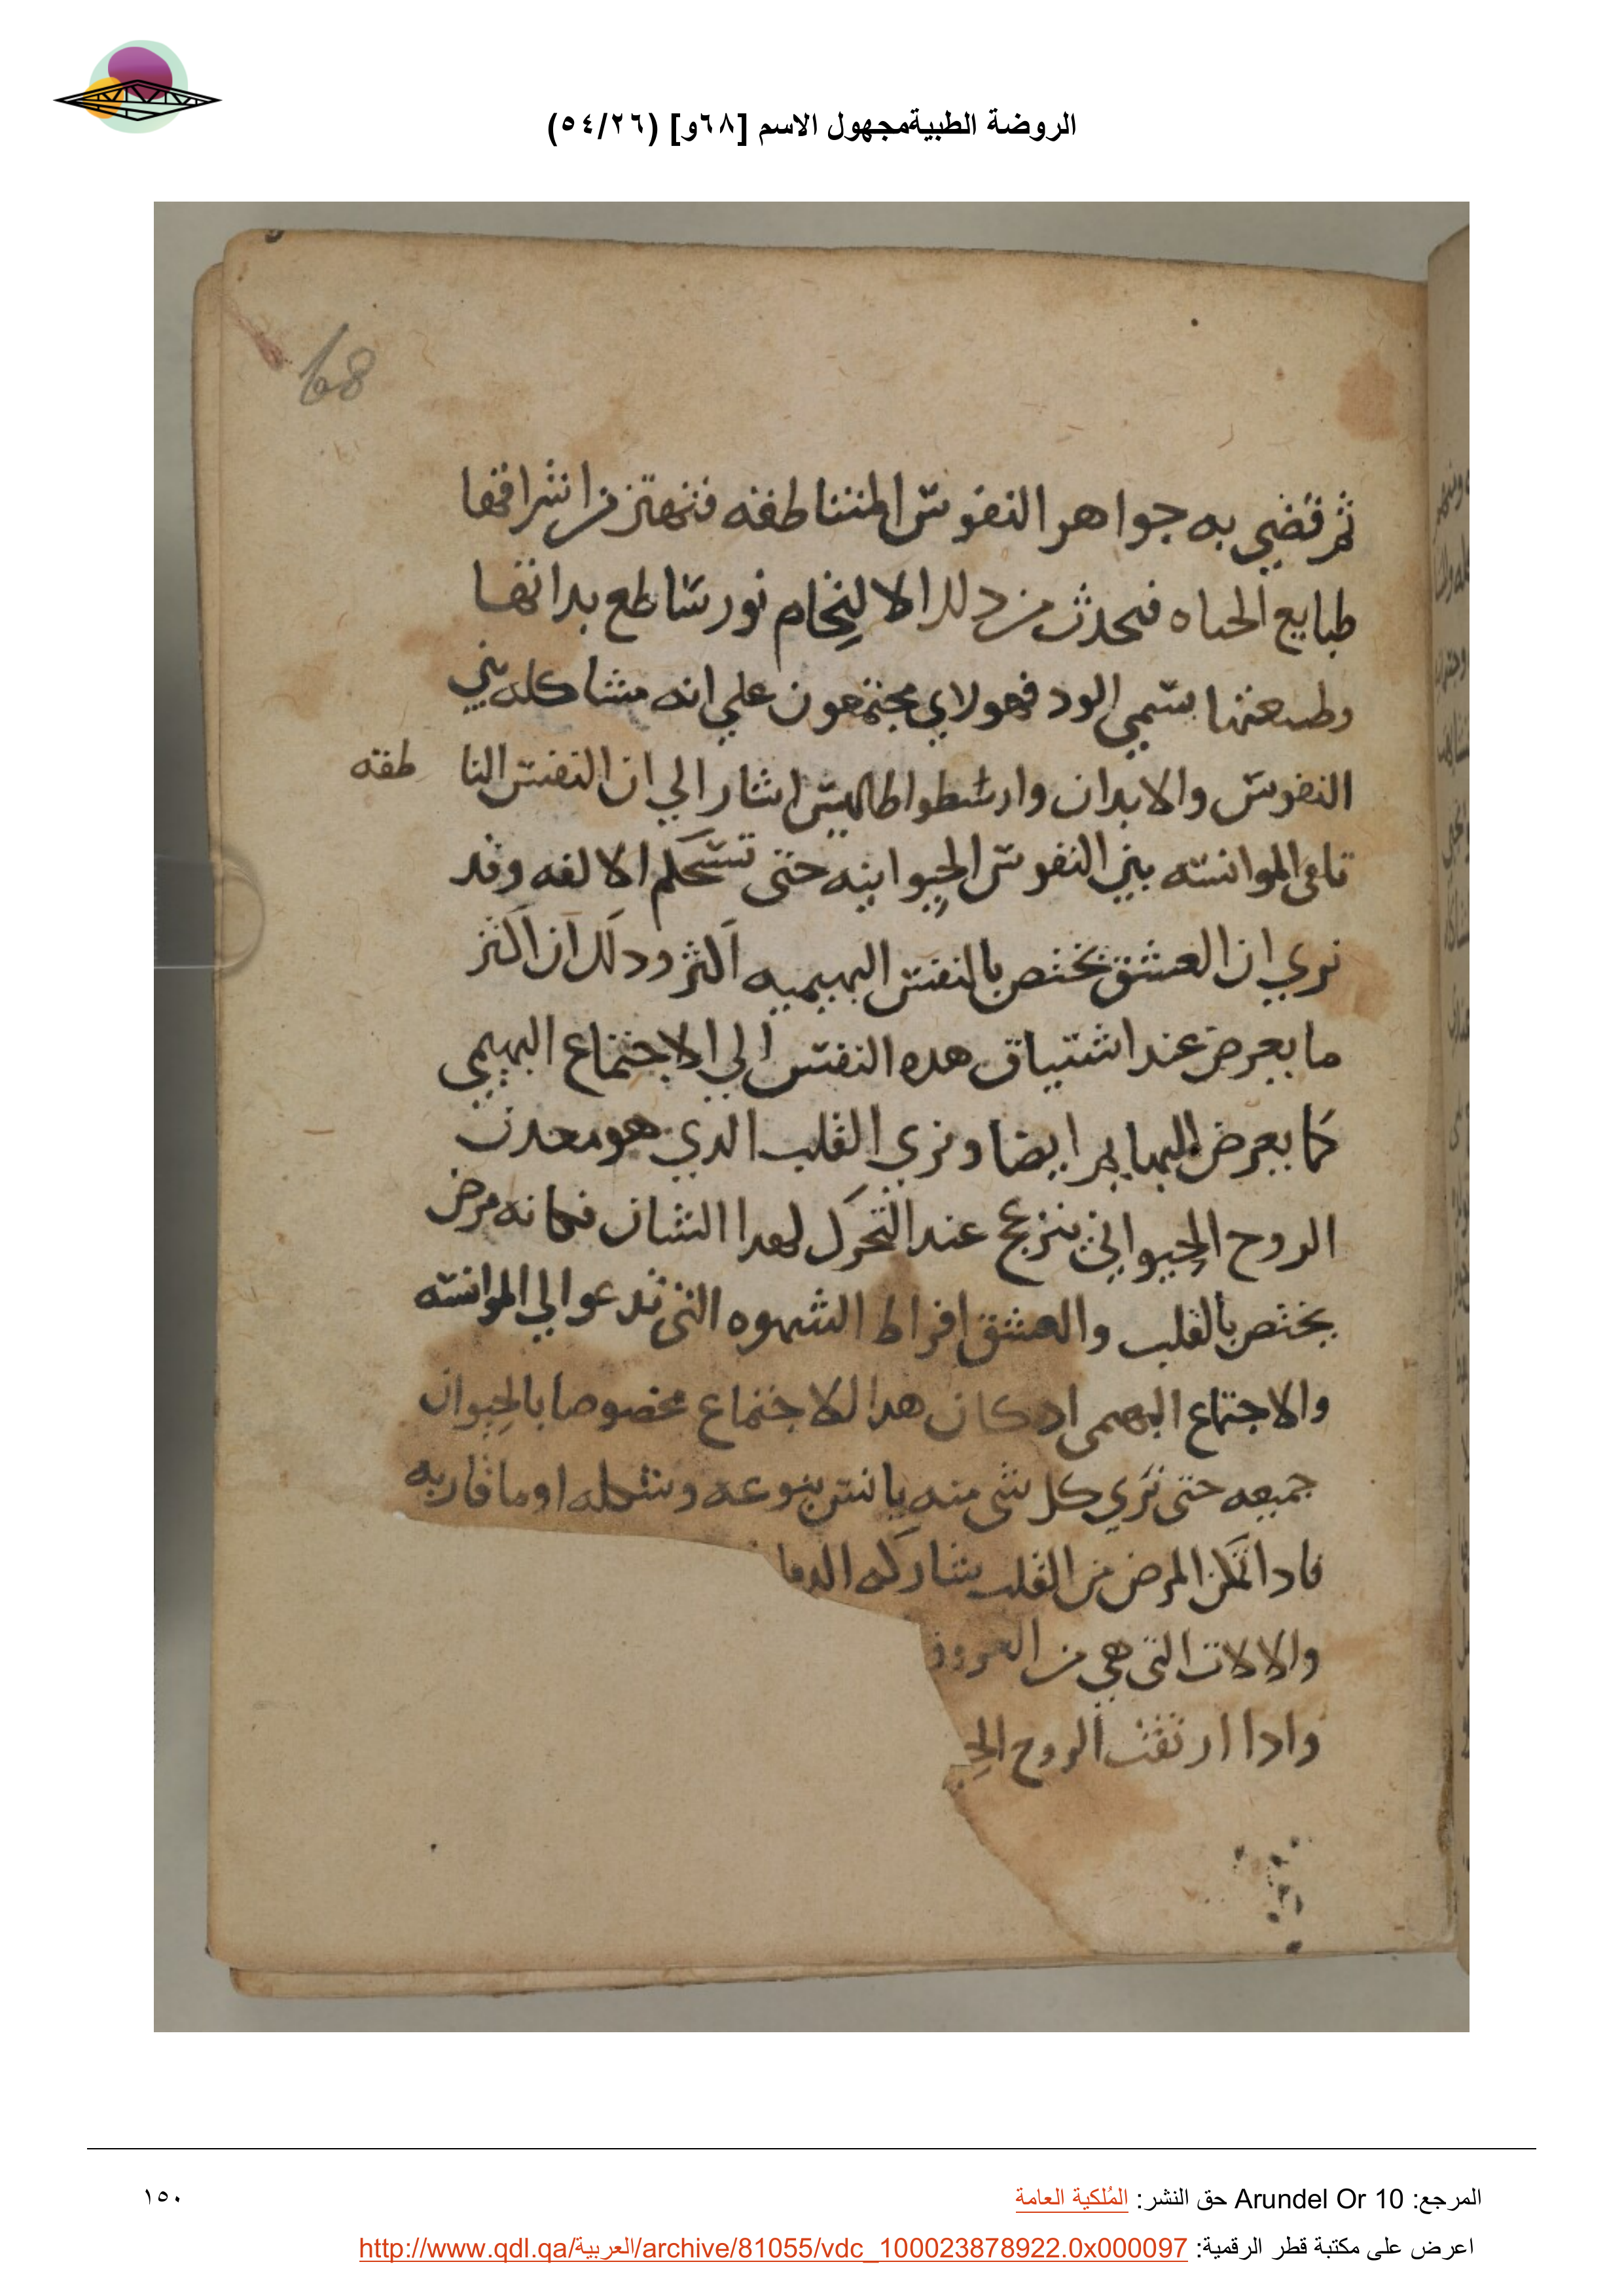 الروضة الطبيةمجهول الاسم [٦٨و] (٥٤/٢٦)
68
ثم قضي به جواهر النفوس المتناطفه فتهتز من اشراقها
طبايع الحياه فيحدث من دلك الالتحام نور ساطع بداتها
وطبيعتها يسمي الود فهولاي مجتمعون علي انه مشاكله بين
النفوس والابدان وارسطواطاليس اشار الي ان النفس النا طقه
تلقي الموانسه بين النفوس الحيوانيه حتى تستحكم الالفه وقد
نري ان العشق يختص بالنفس البهيميه اكثر ودلك ان اكثر
ما يعرض عند اشتياق هده النفس الي الاجتماع البهيمي
كما يعرض للبهايم ايضا ونري القلب الدي هو معدن
الروح الحيواني ينزعج عند التحرك لهدا الشان فكانه مرض
يختص بالقلب والعشق افراط الشهوه التي تدعوا الي الموانسه
والاجتماع البهيمي اد كان هدا الاجتماع مخصوصا بالحيوان
جميعه حتى نري كل شى منه يانس بنوعه وشكله او ما قاربه
فادا تمكن المرض من القلب يشاركه الدما
والالات التي هي من العروق
وادا ارتقت الروح الحيـ
المرجع: Arundel Or 10 حق النشر: المُلكية العامة
١٥٠
اعرض على مكتبة قطر الرقمية: http://www.qdl.qa/العربية/archive/81055/vdc_100023878922.0x000097